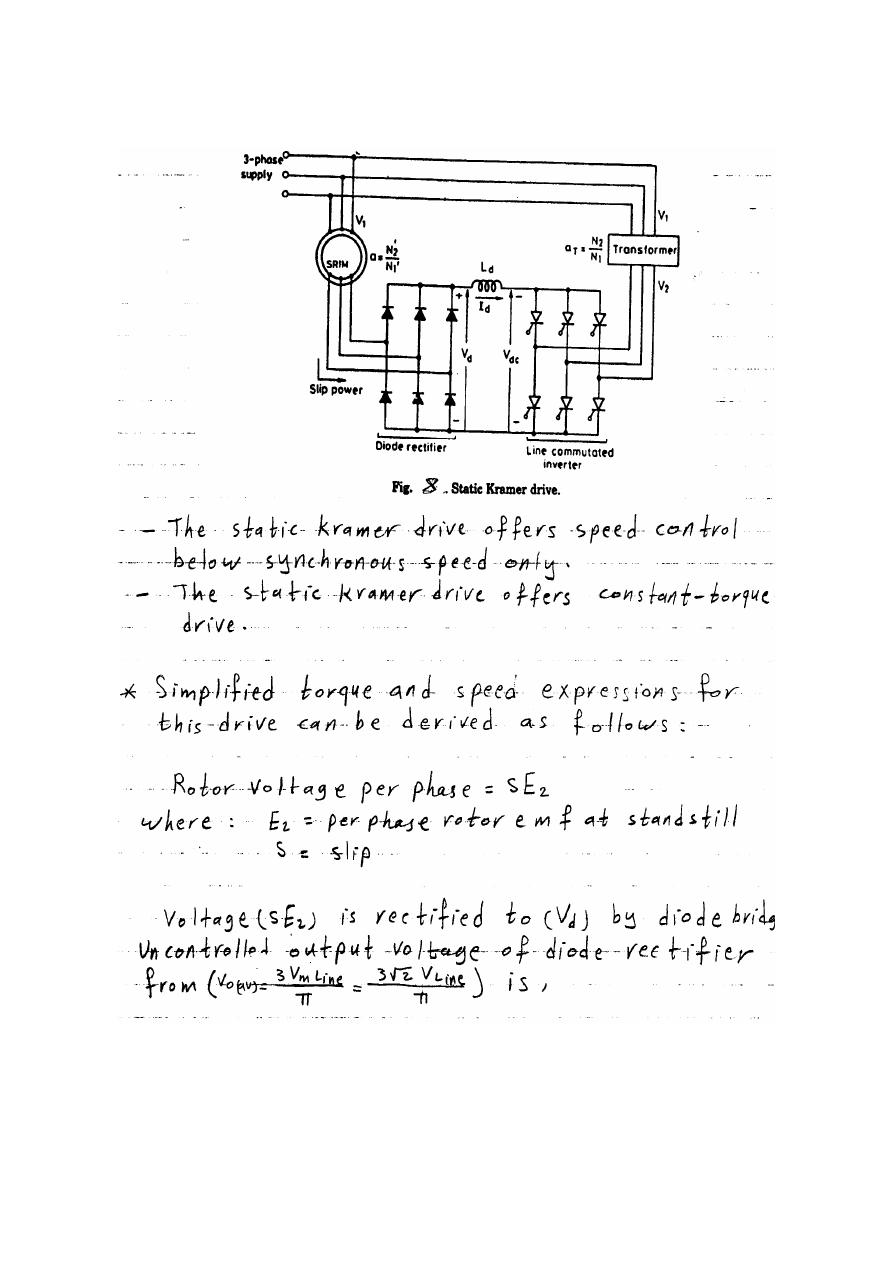 3-phase
supply
V1
V1
SRIM
a = N2' / N1'
aT = N2 / N1
Transformer
V2
Ld
+
-
Id
Vd
Vdc
Slip power
-
-
Diode rectifier
Line commutated
inverter
Fig. 8 . Static Kramer drive.
- The static kramer drive offers speed control
below synchronous speed only.
- The static kramer drive offers constant-torque
drive.
* Simplified torque and speed expressions for
this drive can be derived as follows :-
Rotor Voltage per phase = SE2
where : E2 = per phase rotor emf at standstill
S = slip
Voltage (SE2) is rectified to (Vd) by diode bridg
Uncontrolled output voltage of diode rectifier
from (Vo(av)= 3 Vm Line / π = 3√2 VLine / π ) is ,